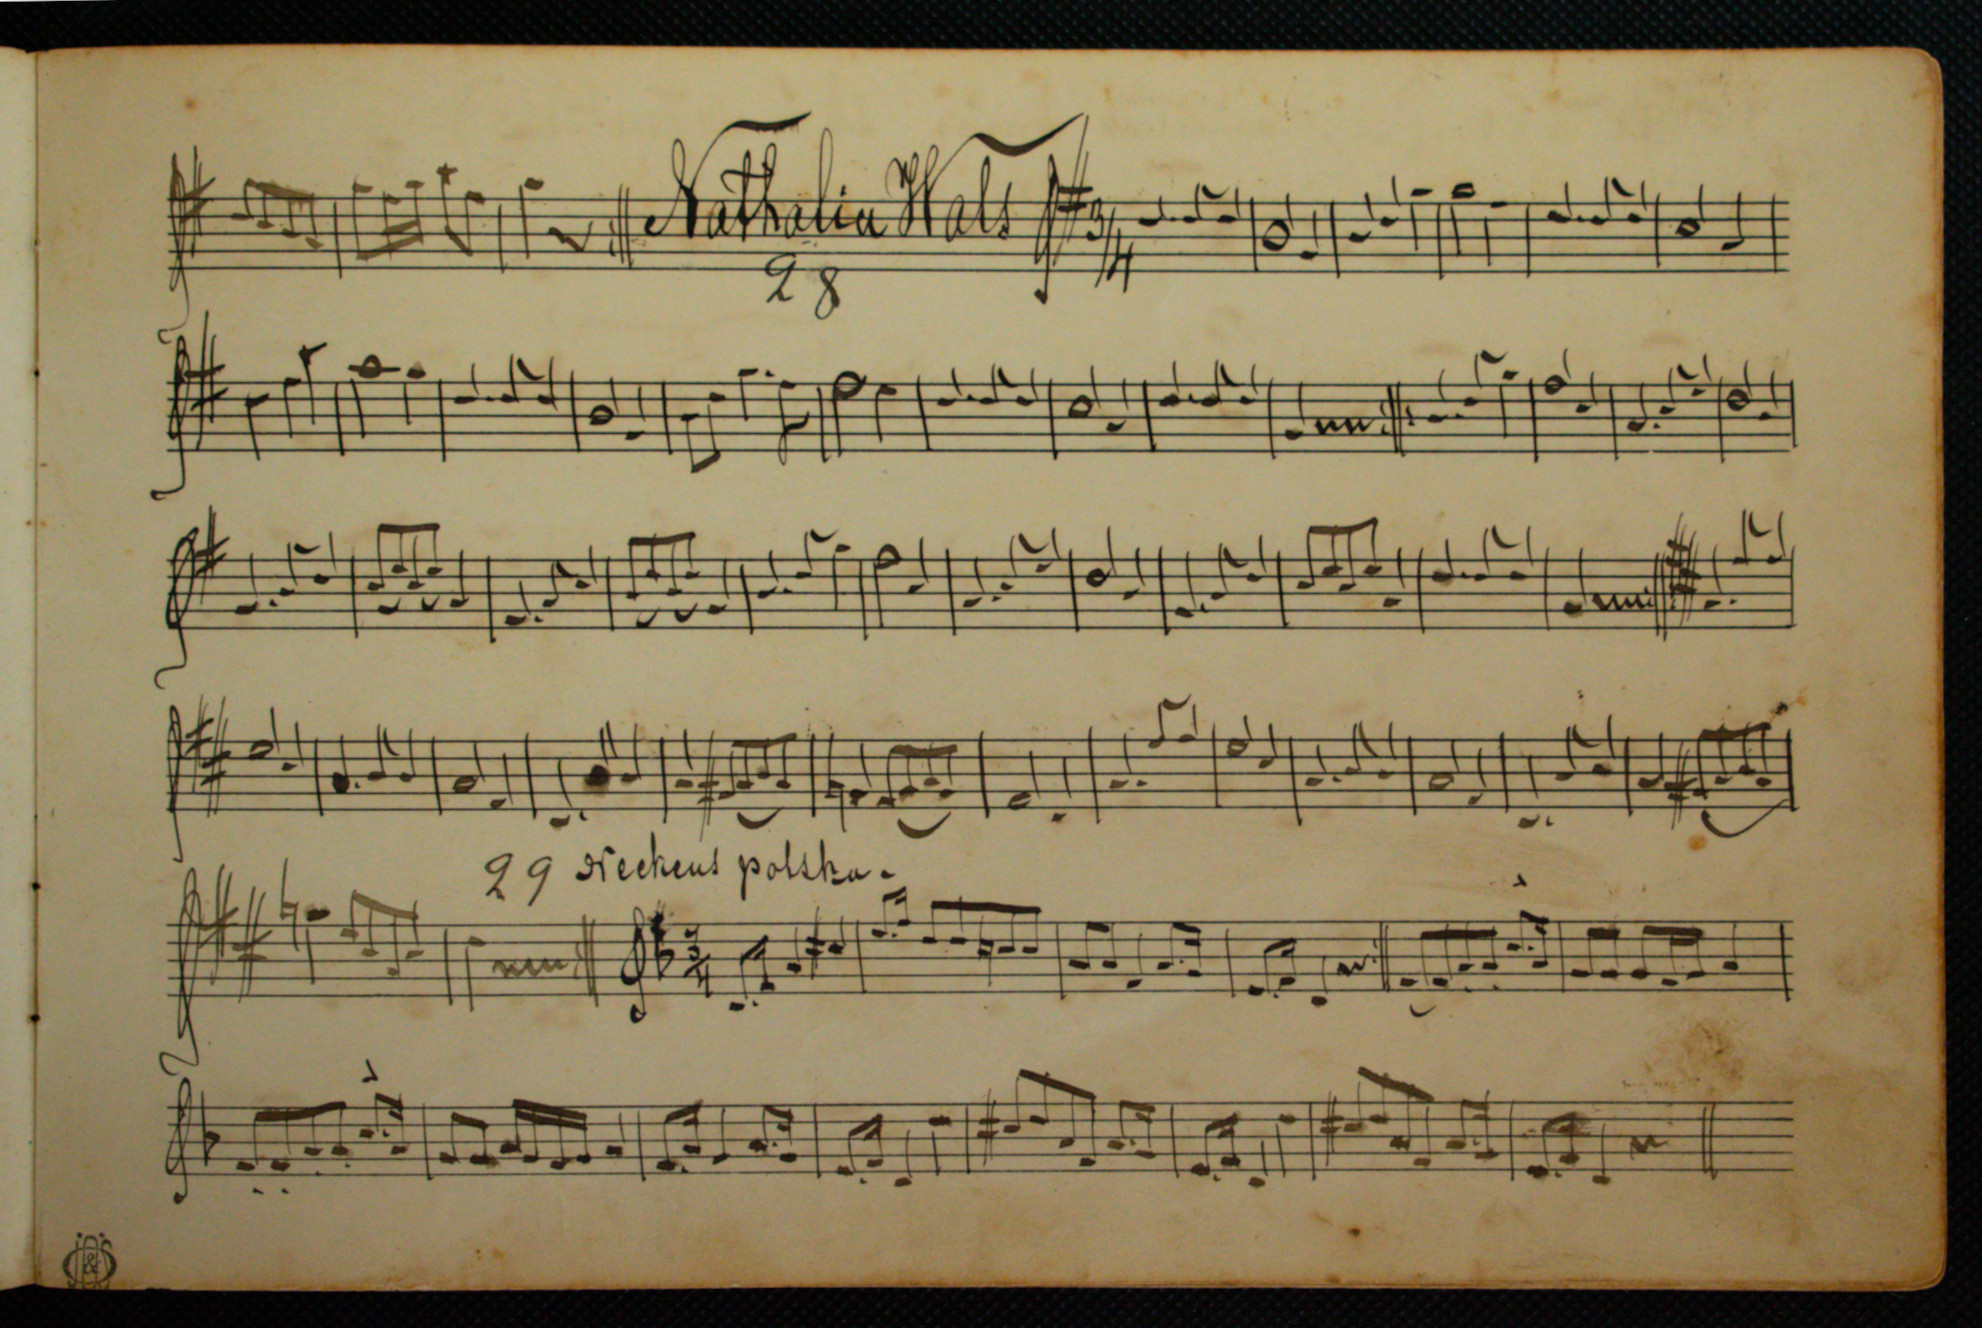 Nathalia Wals 3/4
28
29 Neckens polska.
3/4